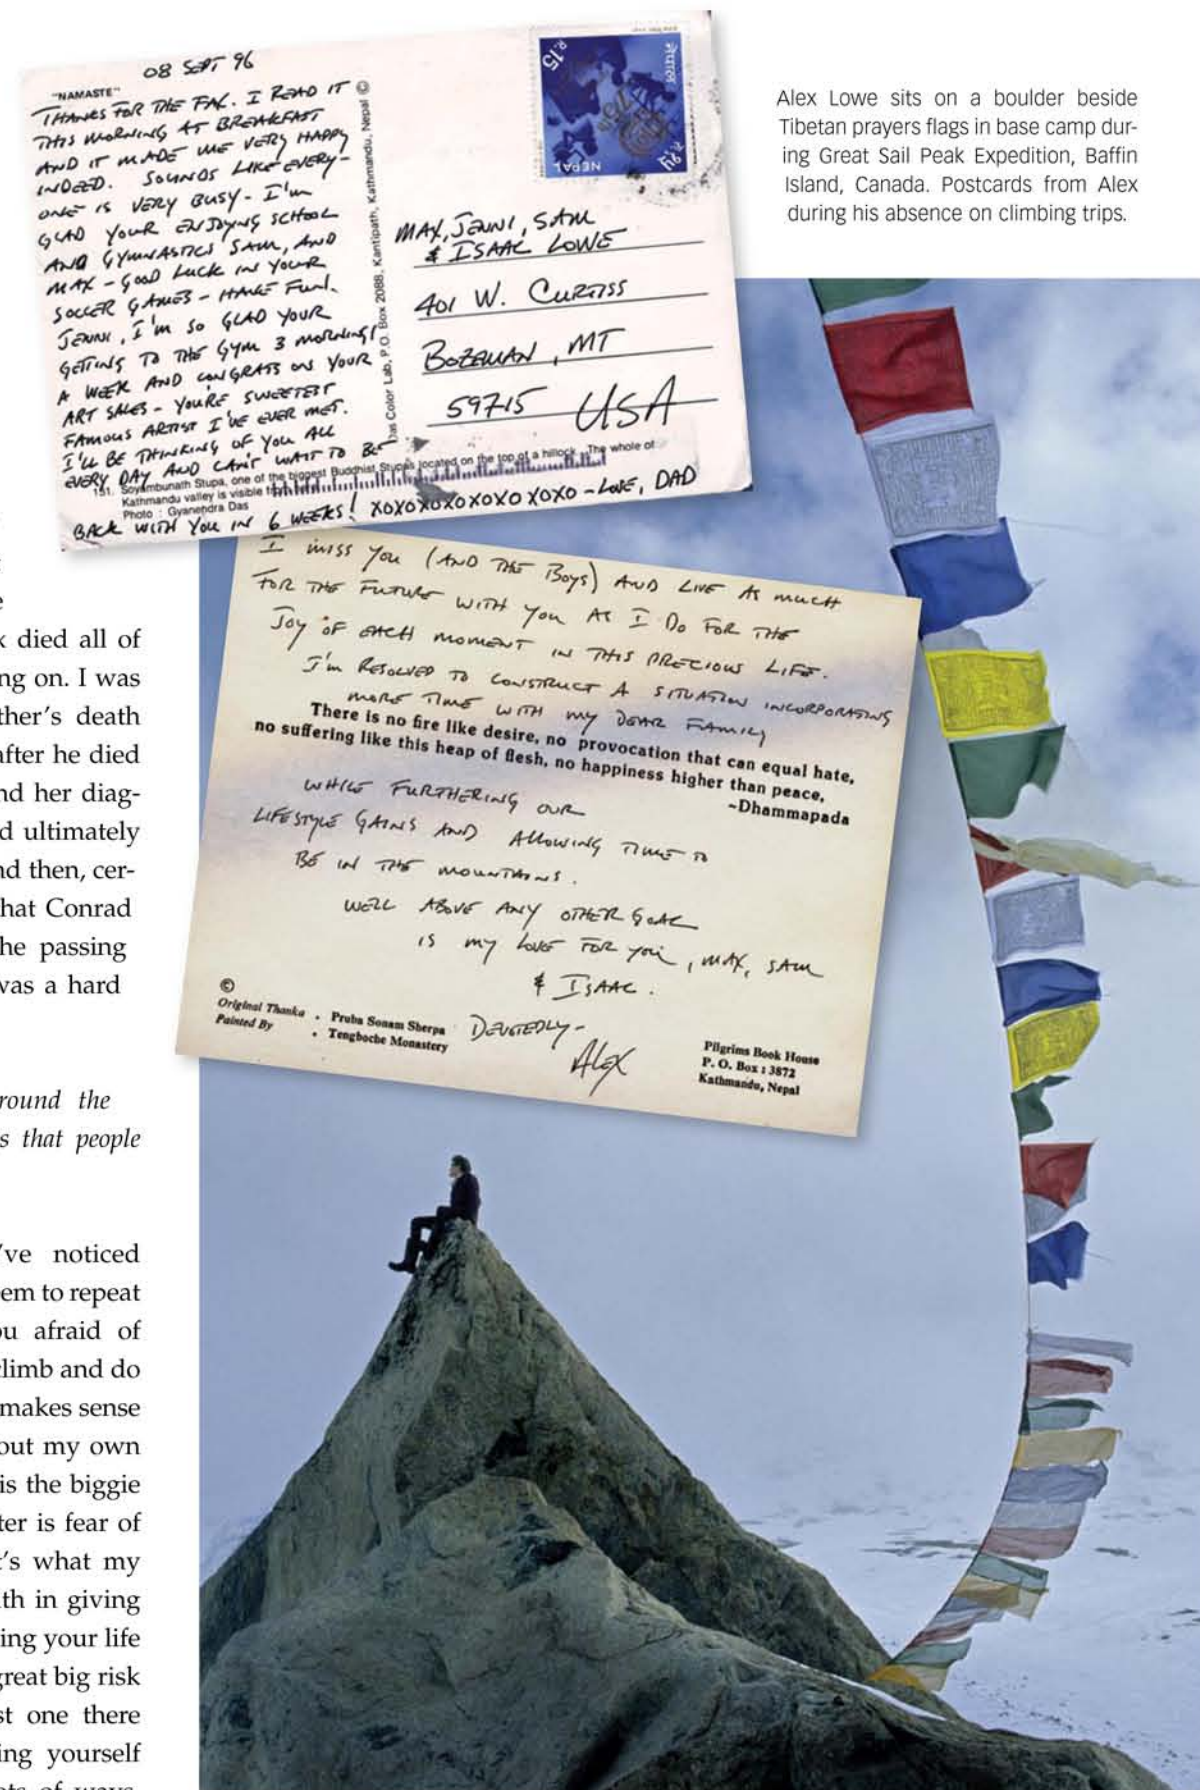 08 SEPT 96
"NAMASTE"
THANKS FOR THE FAX. I READ IT
THIS MORNING AT BREAKFAST
AND IT MADE ME VERY HAPPY
INDEED. SOUNDS LIKE EVERY-
ONE IS VERY BUSY - I'M
GLAD YOUR ENJOYING SCHOOL
AND GYMNASTICS SAM, AND
MAX - GOOD LUCK IN YOUR
SOCCER GAMES - HAVE FUN.
JENNI, I'M SO GLAD YOUR
GETTING TO THE GYM 3 MORNINGS
A WEEK AND CONGRATS ON YOUR
ART SALES - YOU'RE SWEETEST
FAMOUS ARTIST I'VE EVER MET.
I'LL BE THINKING OF YOU ALL
EVERY DAY AND CAN'T WAIT TO BE
BACK WITH YOU IN 6 WEEKS! XOXOXOXOXOXO XOXO - LOVE, DAD
151. Soyambunath Stupa, one of the biggest Buddhist Stupas located on the top of a hillock. The whole of
Kathmandu valley is visible
Photo : Gyanendra Das
Das Color Lab, P.O. Box 2088, Kantipath, Kathmandu, Nepal ©
NEPAL
MAX, JENNI, SAM
& ISAAC LOWE
401 W. CURTISS
BOZEMAN, MT
59715 USA
Alex Lowe sits on a boulder beside
Tibetan prayers flags in base camp dur-
ing Great Sail Peak Expedition, Baffin
Island, Canada. Postcards from Alex
during his absence on climbing trips.
I MISS YOU (AND THE BOYS) AND LIVE AS MUCH
FOR THE FUTURE WITH YOU AS I DO FOR THE
JOY OF EACH MOMENT IN THIS PRECIOUS LIFE.
I'M RESOLVED TO CONSTRUCT A SITUATION INCORPORATING
MORE TIME WITH MY DEAR FAMILY
There is no fire like desire, no provocation that can equal hate,
no suffering like this heap of flesh, no happiness higher than peace,
~Dhammapada
WHILE FURTHERING OUR
LIFESTYLE GAINS AND ALLOWING TIME TO
BE IN THE MOUNTAINS.
WELL ABOVE ANY OTHER GOAL
IS MY LOVE FOR YOU, MAX, SAM
& ISAAC.
DEVOTEDLY-
ALEX
©
Original Thanka . Pruba Sonam Sherpa
Painted By . Tengboche Monastery
Pilgrims Book House
P. O. Box : 3872
Kathmandu, Nepal
died all of
ng on. I was
ther's death
after he died
nd her diag-
d ultimately
nd then, cer-
hat Conrad
he passing
was a hard
round the
s that people
've noticed
em to repeat
ou afraid of
climb and do
makes sense
out my own
is the biggie
ter is fear of
t's what my
th in giving
ing your life
great big risk
st one there
ing yourself
ots of ways